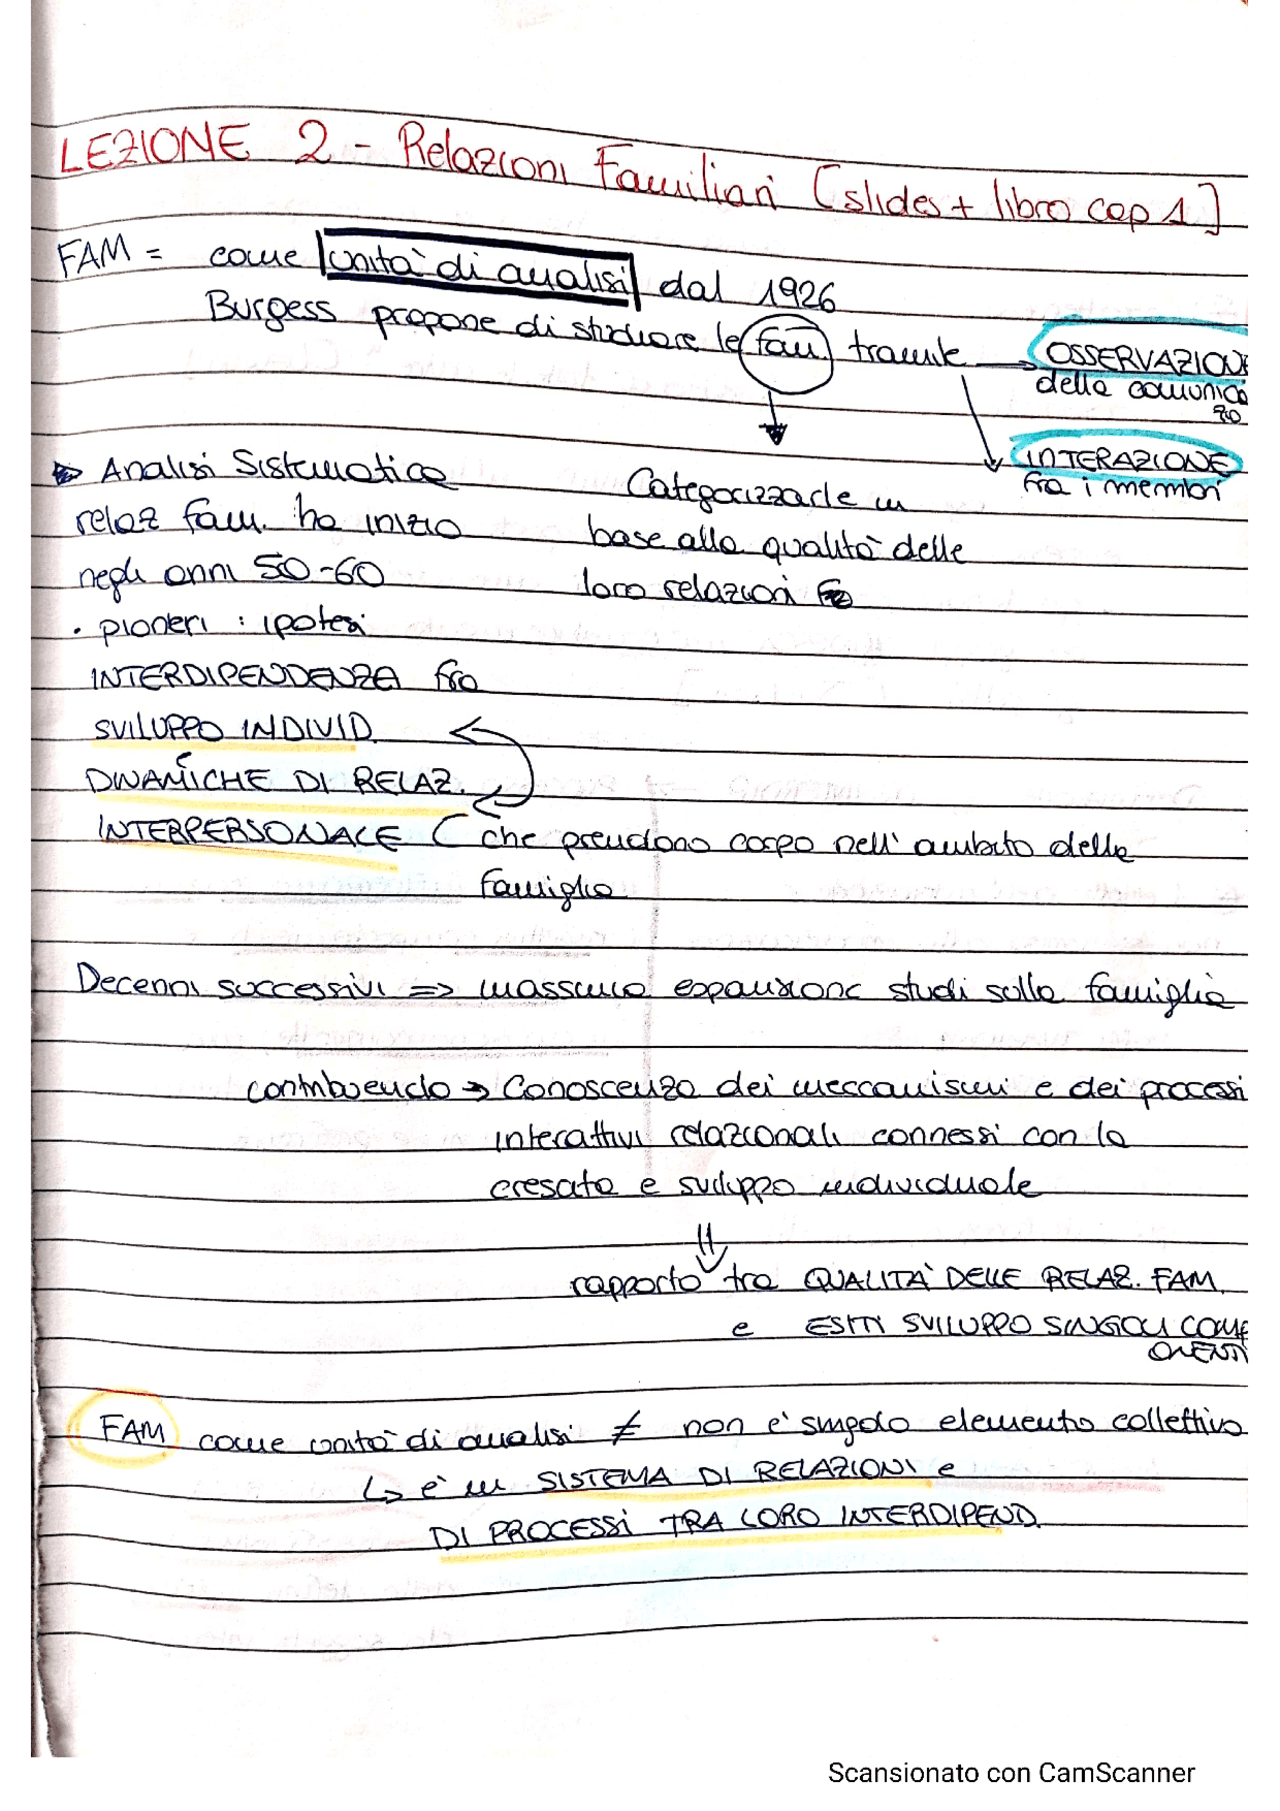 LEZIONE 2 - Relazioni Familiari [slides + libro cap 1]
FAM = come unità di analisi dal 1926
Burgess propone di studiare le fam. tramite → OSSERVAZIONE
della comunica
zo
INTERAZIONE
fra i membri
Categorizzarle in
base alla qualità delle
loro relazioni
Analisi Sistematica
relaz fam. ha inizio
negli anni 50-60
• pionieri : ipotesi
INTERDIPENDENZA fra
SVILUPPO INDIVID.
DINAMICHE DI RELAZ.
INTERPERSONALE ( che prendono corpo nell' ambito della
famiglia
Decenni successivi => massima espansione studi sulla famiglia
contribuendo → Conoscenza dei meccanismi e dei processi
interattivi relazionali connessi con la
crescita e sviluppo individuale
rapporto tra QUALITÀ DELLE RELAZ. FAM.
e ESITI SVILUPPO SINGOLI COMP
ONENTI
FAM come unità di analisi ≠ non è singolo elemento collettivo
↳ è un SISTEMA DI RELAZIONI e
DI PROCESSI TRA LORO INTERDIPEND.
Scansionato con CamScanner